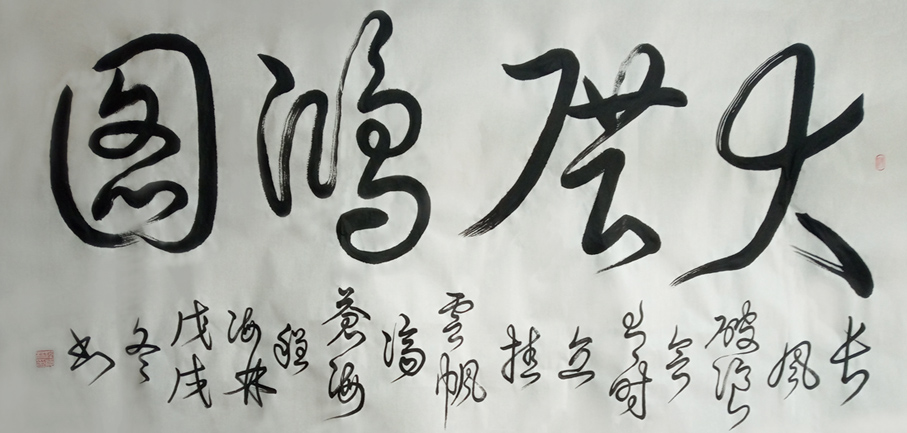 大展鸿图
长风破浪会有时直挂云帆济沧海
程海林
戊戌冬
书